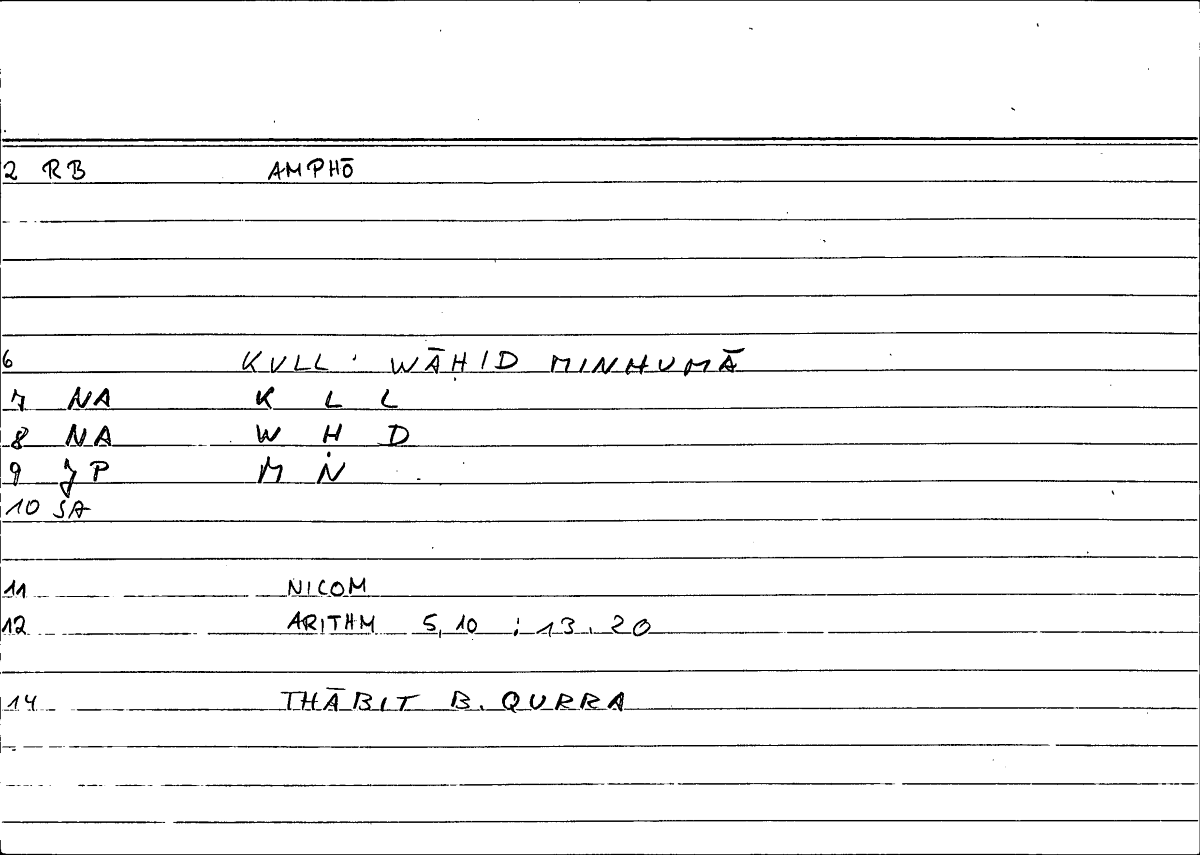 2 RB AMPHŌ
6 KULL· WĀḤID MINHUMĀ
7 NA K L L
8 NA W Ḥ D
9 JP M N
10 SA
11 NICOM
12 ARITHM 5,10 ; 13.20
14 THĀBIT B. QURRA